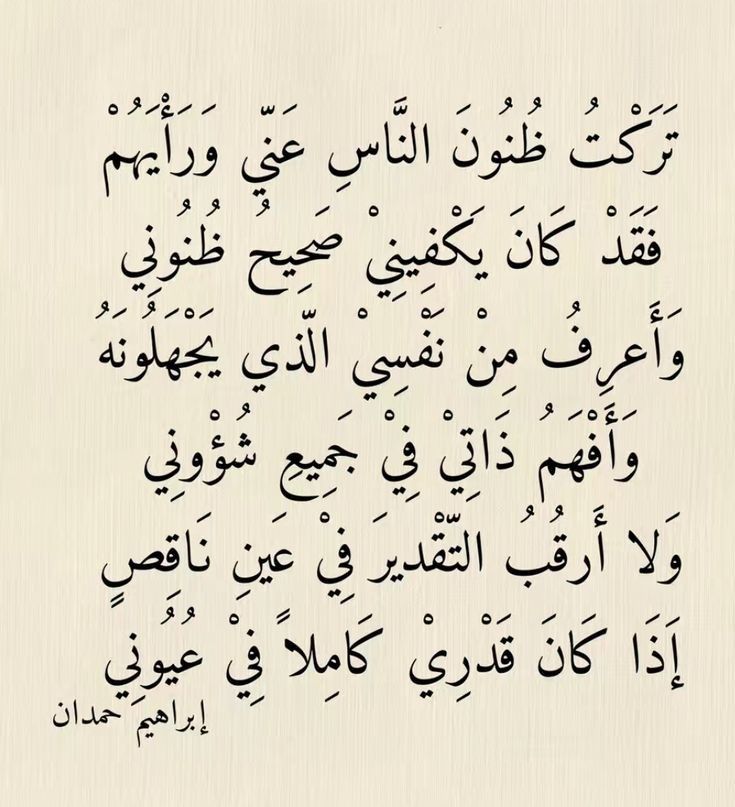 تَرَكْتُ ظُنُونَ النَّاسِ عَنّي وَرَأْيَهُمْ
فَقَدْ كَانَ يَكْفِينِيْ صَحِيحُ ظُنُونِي
وَأَعرِفُ مِنْ نَفْسِيْ الّذي يَجْهَلُونَهُ
وَأَفْهَمُ ذَاتِيْ فِيْ جَمِيعِ شُؤْونِي
وَلا أَرقُبُ التّقْديرَ فِيْ عَينِ نَاقِصٍ
إَذَا كَانَ قَدْرِيْ كَامِلاً فِيْ عُيُونِي
إبراهيم حمدان